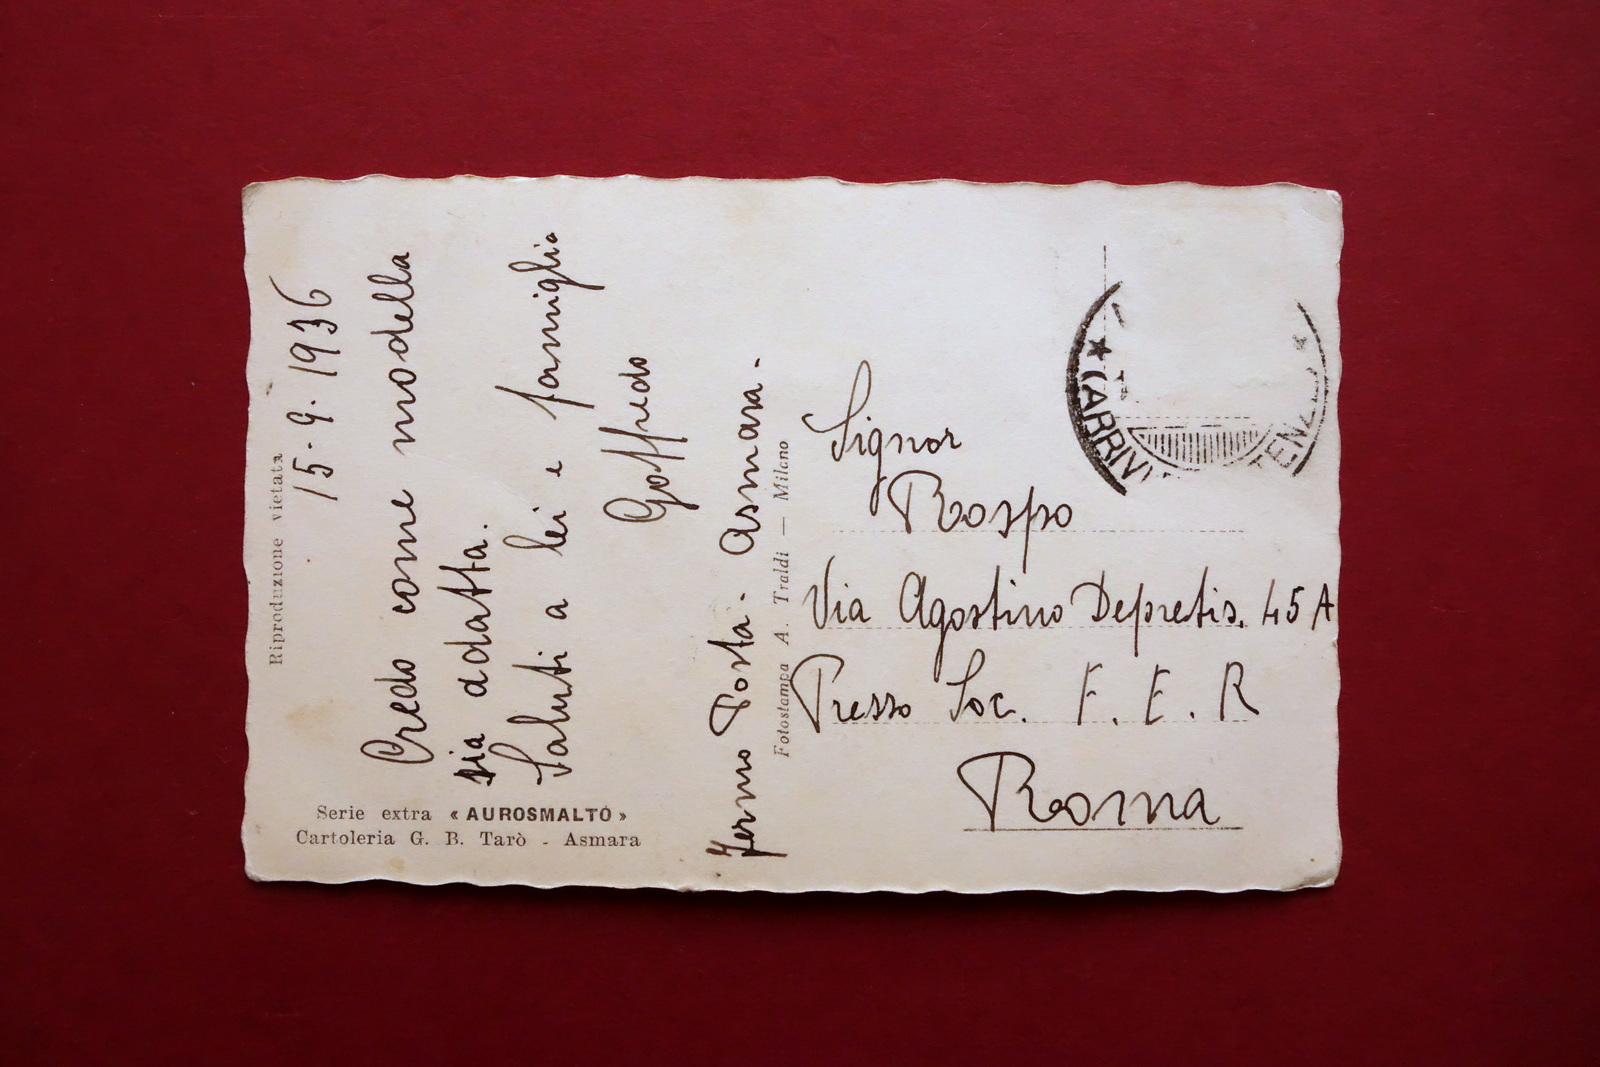 Riproduzione vietata
15-9-1936
Credo come modella
sia adatta.
Saluti a lei e famiglia
Goffredo
Fermo Posta - Asmara -
Serie extra « AUROSMALTO »
Cartoleria G. B. Tarò - Asmara
Fotostampa A. Traldi — Milano
Signor
Rospo
Via Agostino Depretis. 45 A
Presso Soc. F. E. R
Roma